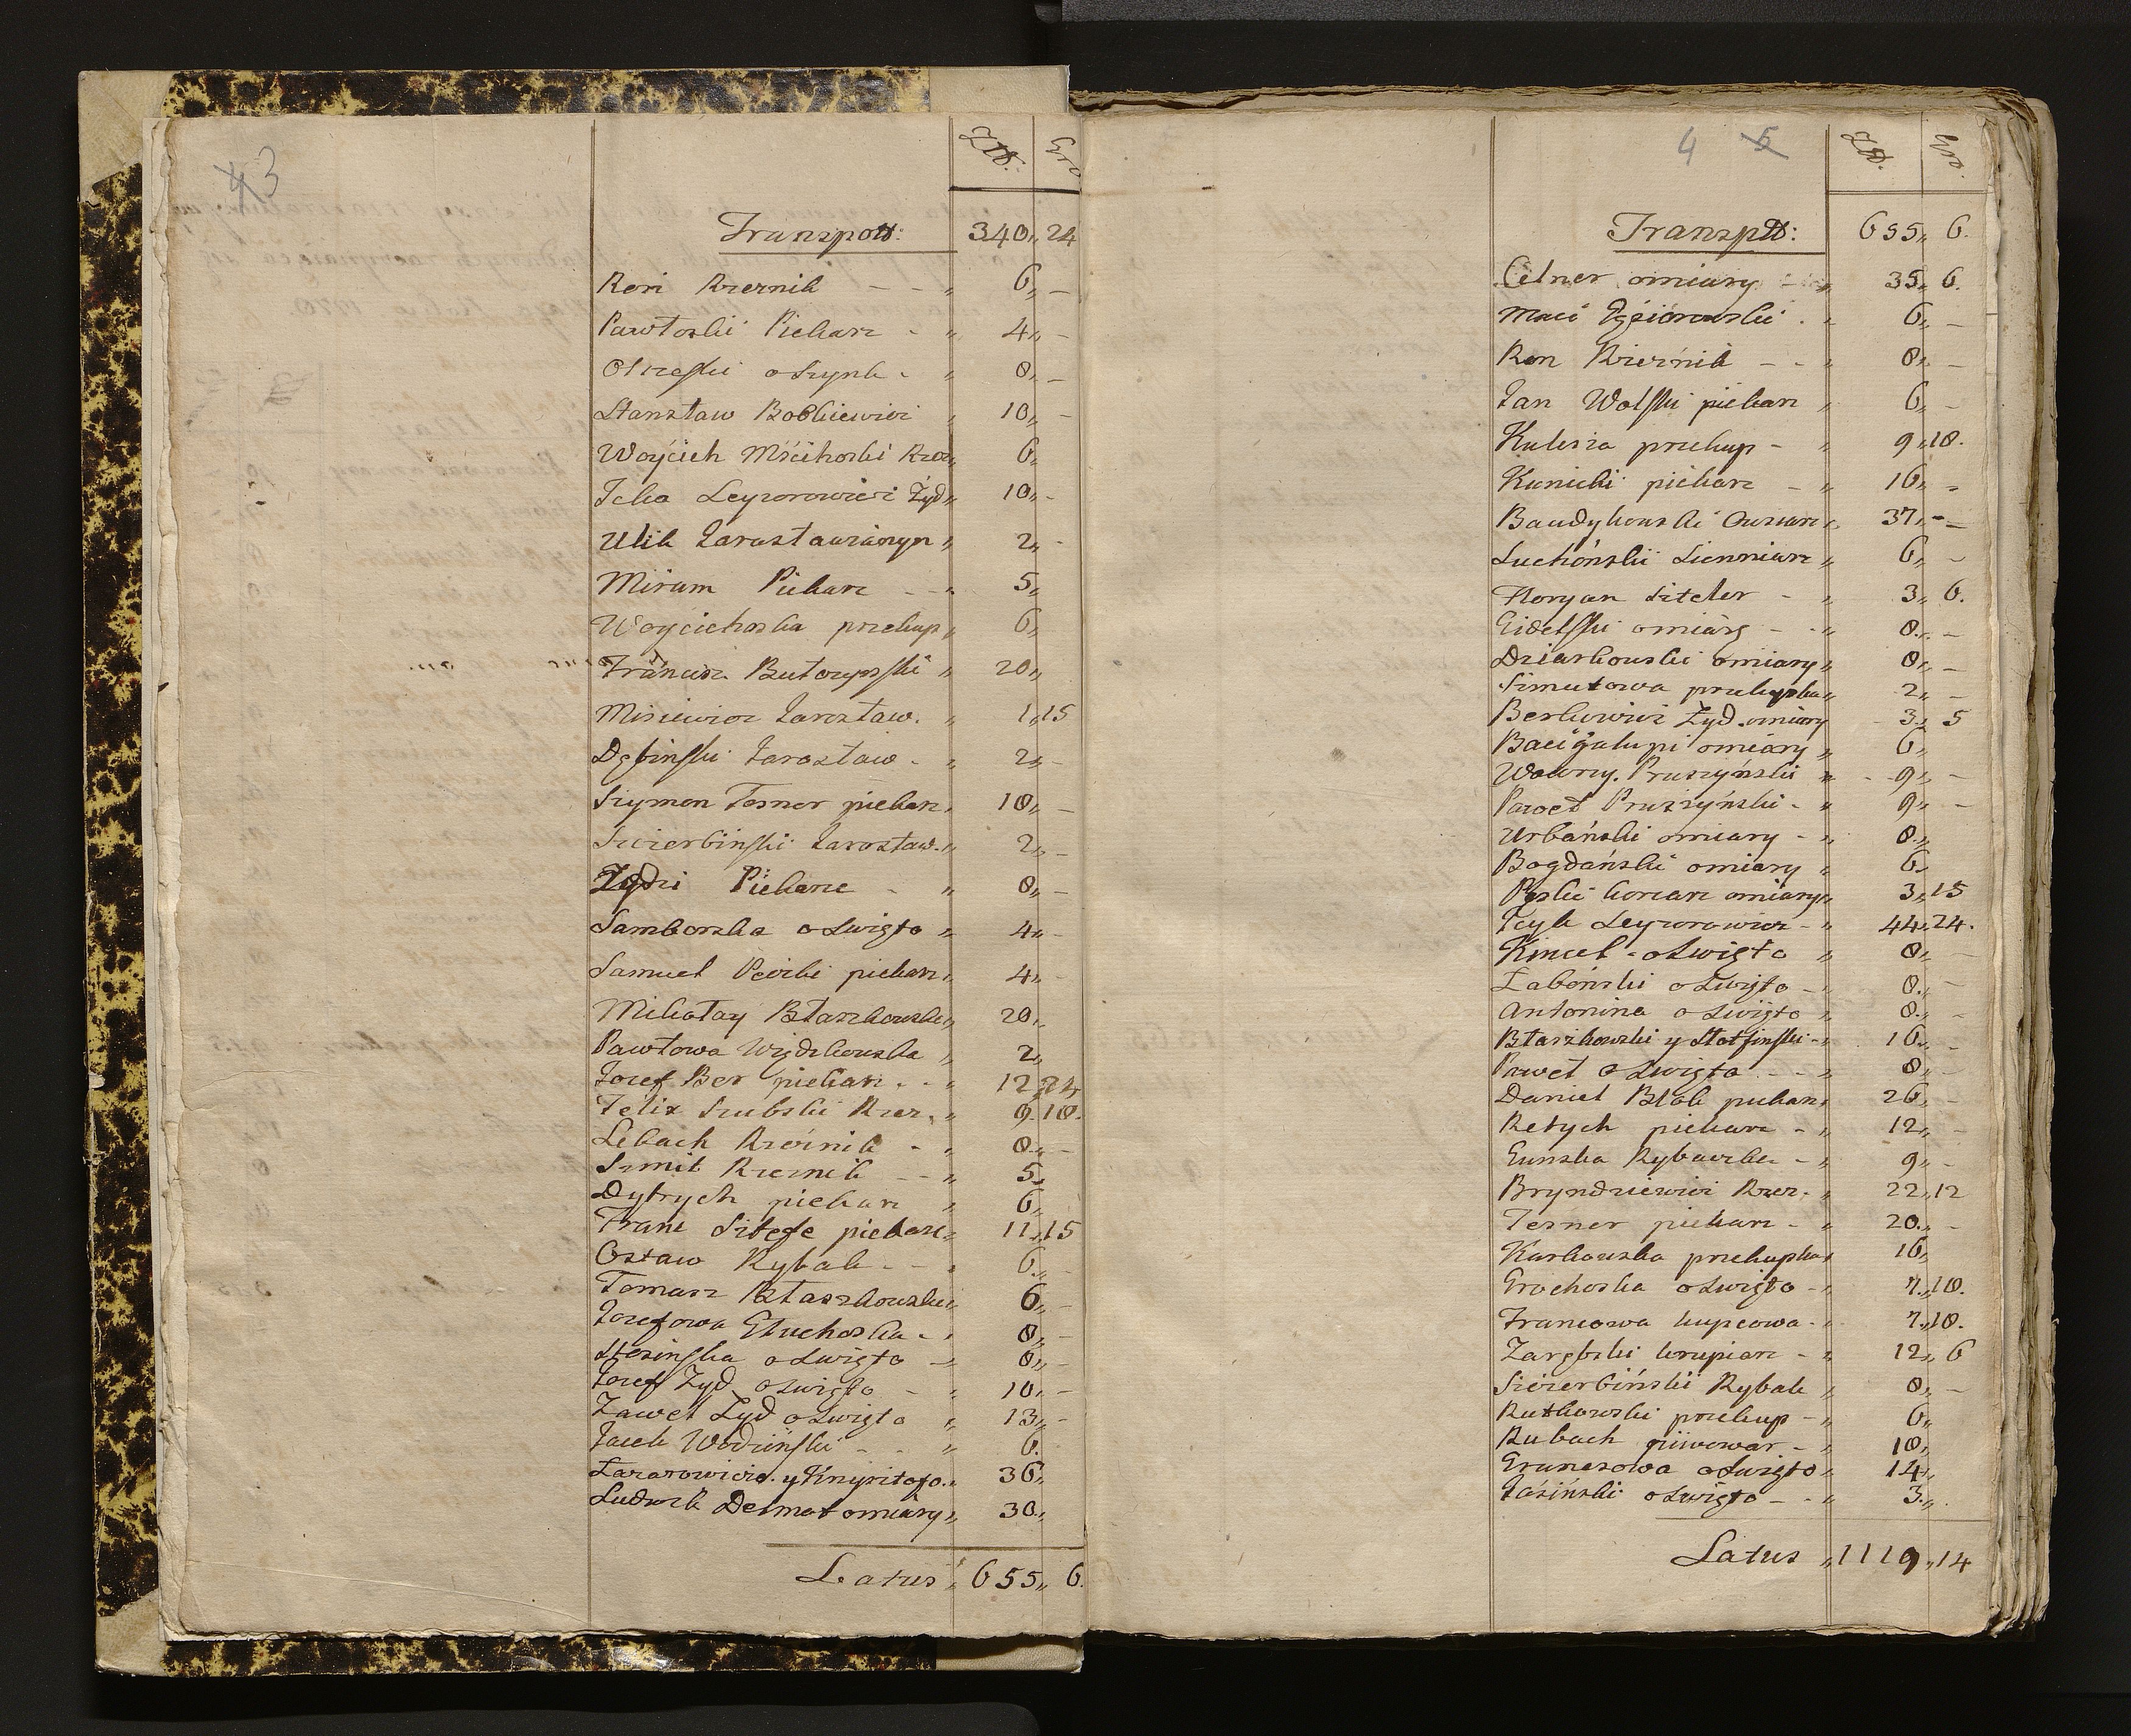 4 3
Złł. Gro
Transpott: 340,, 24
Kori Rzeznik - - ,, 6,, -
Pawłoski Piekarz - ,, 4,, -
oszynk - ,, 8,, -
Stanisław Bobkiewicz ,, 10,, -
Woyćiech Mśćihoski Rzez,, 6,,
Icka Leyzorowicz Żyd,, 10,, -
Ulik Jarosławianyn ,, 2,, -
Miram Piekarz - - ,, 5,,
Woyciechoska przekup,, 6,,
Franćisz Butorynski ,, 20,,
Misiewicz Jarosław. ,, 1,,15
Dębinski Jarosław - ,, 2,, -
Szymon Tesner piekarz,, 18,, -
Szczerbinski Jarosław.,, 2,, -
Żydzi Piekarze - ,, 8,, -
Samborska o Swięto ,, 4,, -
Samuel piekarz,, 4,, -
Mikołay Błaszkowski,, 20,,
Pawłowa Więdzkowska ,, 2,,
Jozef Ber piekarz . - ,, 12,,24
Felix Szubski Rzez. ,, 9.18.
Lebach Rzeźnik - ,, 8,, -
Szmit Rzeznik - - ,, 5,,
Dytrych piekarz ,, 6,,
Franc piekarz,, 11,,15
Osław Rybak - - ,, 6,, -
Tomasz Błaszkowski,, 6,, -
Jozefowa Głuchoska - ,, 8,, -
o Swięto - ,, 8,, -
Jozef Żyd o Swięto - ,, 10,, -
Zawel Żyd o Swięto ,, 13,, -
Jacek Wodzinski - - ,, 6.
Łazarowicz y ,, 36,,
Ludwik Delmat omiary,, 30,,
Latus ,, 655,, 6.
4 5
Złł. Gro.
Transptt: 655,, 6.
Celner omiary - ,, 35,, 6.
Maci . ,, 6,, -
Kon Rzieźnik - - ,, 8,, -
Jan Wolski piekarz ,, 6,, -
Kulesza przekup - ,, 9,,18.
Kunicki piekarz - ,, 16,, -
Baudykowski ,, 37,, -
Luchónski Sienniarz,, 6,, -
Floryan - ,, 3,, 6.
Gidelski omiarę - - ,, 8,, -
Dziarkowski omiary,, 8,, -
Simutowa przekupka,, 2,, -
Berkowicz Żyd. omiary 3,, 5
Bacigalupi omiary ,, 6,,
Wawrzy. Pruszyński ,, 9,, -
Paweł Pruszyński - ,, 9,, -
Urbański omiary - ,, 8,,
Bogdański omiary ,, 6,
omiary,, 3,,15
Leyzorowicz - ,, 44,,24.
Kincel - o Swięto ,, 8,, -
Żabóński o Swięto - ,, 8,, -
Antonina o Swięto ,, 8,, -
Błaszkowski y - ,, 16,, -
Paweł o Swięto . - - ,, 8,, -
Daniel Blak piekarz,, 26,, -
Retych piekarz - ,, 12,, -
Gunska Rybaczka - ,, 9,, -
Bryndziewicz Rzez. - ,, 22,,12
Tesner piekarz - ,, 20,, -
Karkowska przekupka,, 16,,
Grochoska o Swięto - ,, 7,,18.
Francowa kupcowa - ,, 7,,18.
Zarębski krupiarz - ,, 12,, 6
Szczerbiński Rybak ,, 8,, -
Rutkowski przekup - ,, 6,,
Kubach piiwowar - ,, 18,,
Grunesowa o Swięto ,, 14,,
Jasiński o Swięto - - ,, 3,,
Latus ,,1119,,14